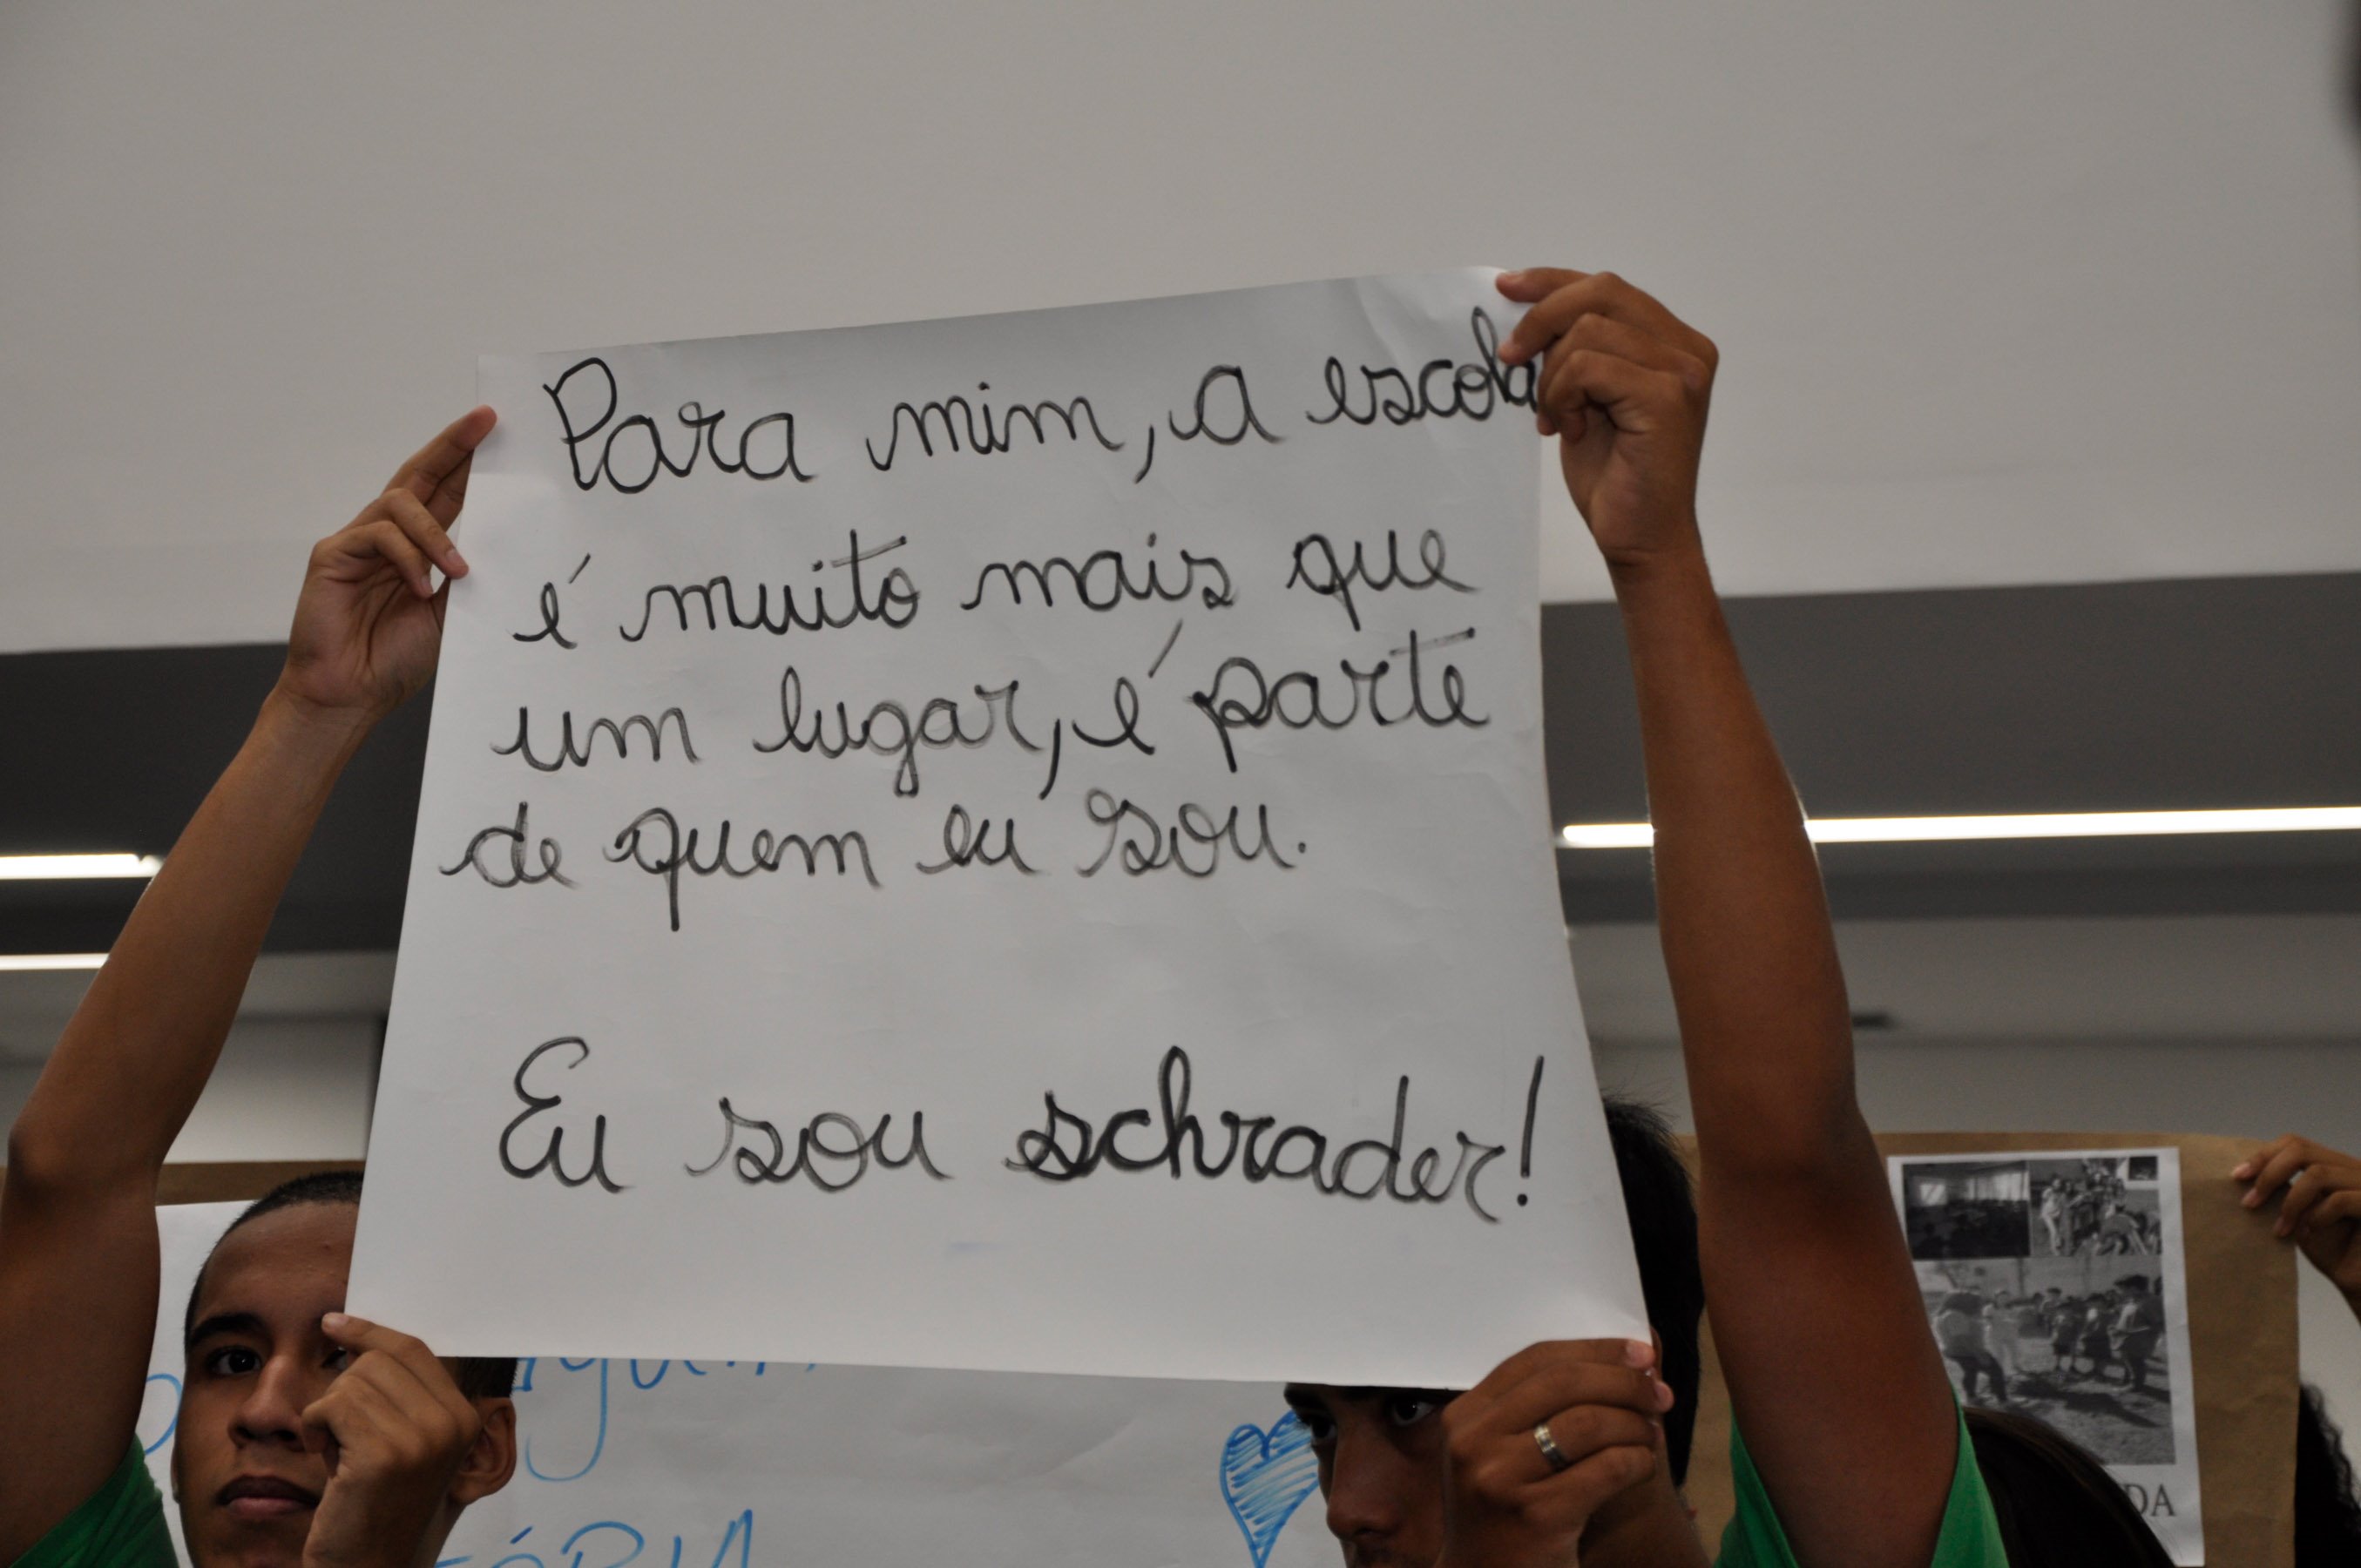 Para mim, a escola
é muito mais que
um lugar, é parte
de quem eu sou.
Eu sou schrader!
DA